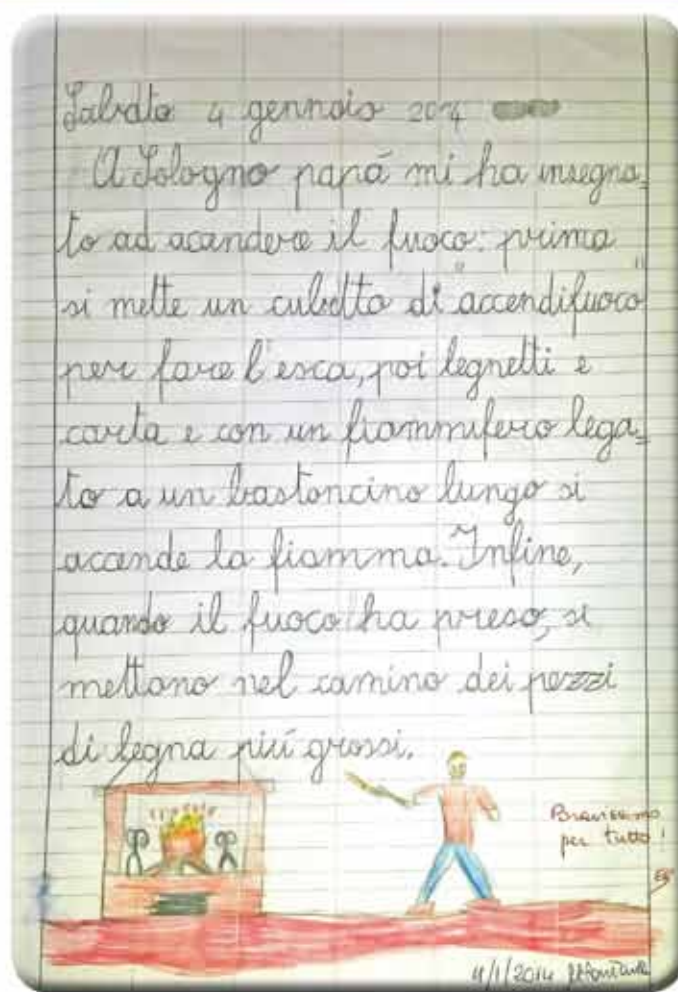 Sabato 4 gennaio 2014
A Sologno papá mi ha insegna=
to ad acandere il fuoco: prima
si mette un cubetto di "accendifuoco"
per fare l'esca, poi legnetti e
carta e con un fiammifero lega=
to a un bastoncino lungo si
accende la fiamma. Infine,
quando il fuoco ha preso, si
mettono nel camino dei pezzi
di legna piú grossi.
Bravissimo
per tutto!
4/1/2014